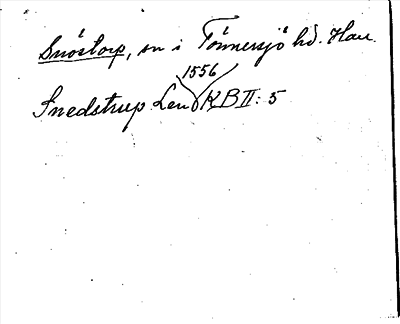 Snöstorp, sn i Tönnersjö hd. Hall.
1556
Snedstrup Len KB II: 5